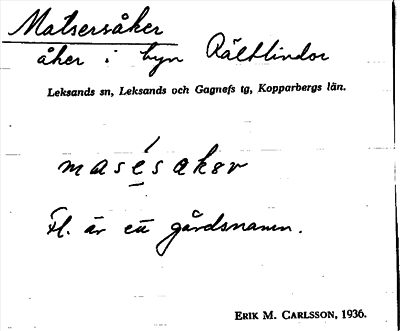 Matsersåker
åker i byn Rältlindor
Leksands sn, Leksands och Gagnefs tg, Kopparbergs län.
masésakər
Fl. är ett gårdsnamn.
ERIK M. CARLSSON, 1936.